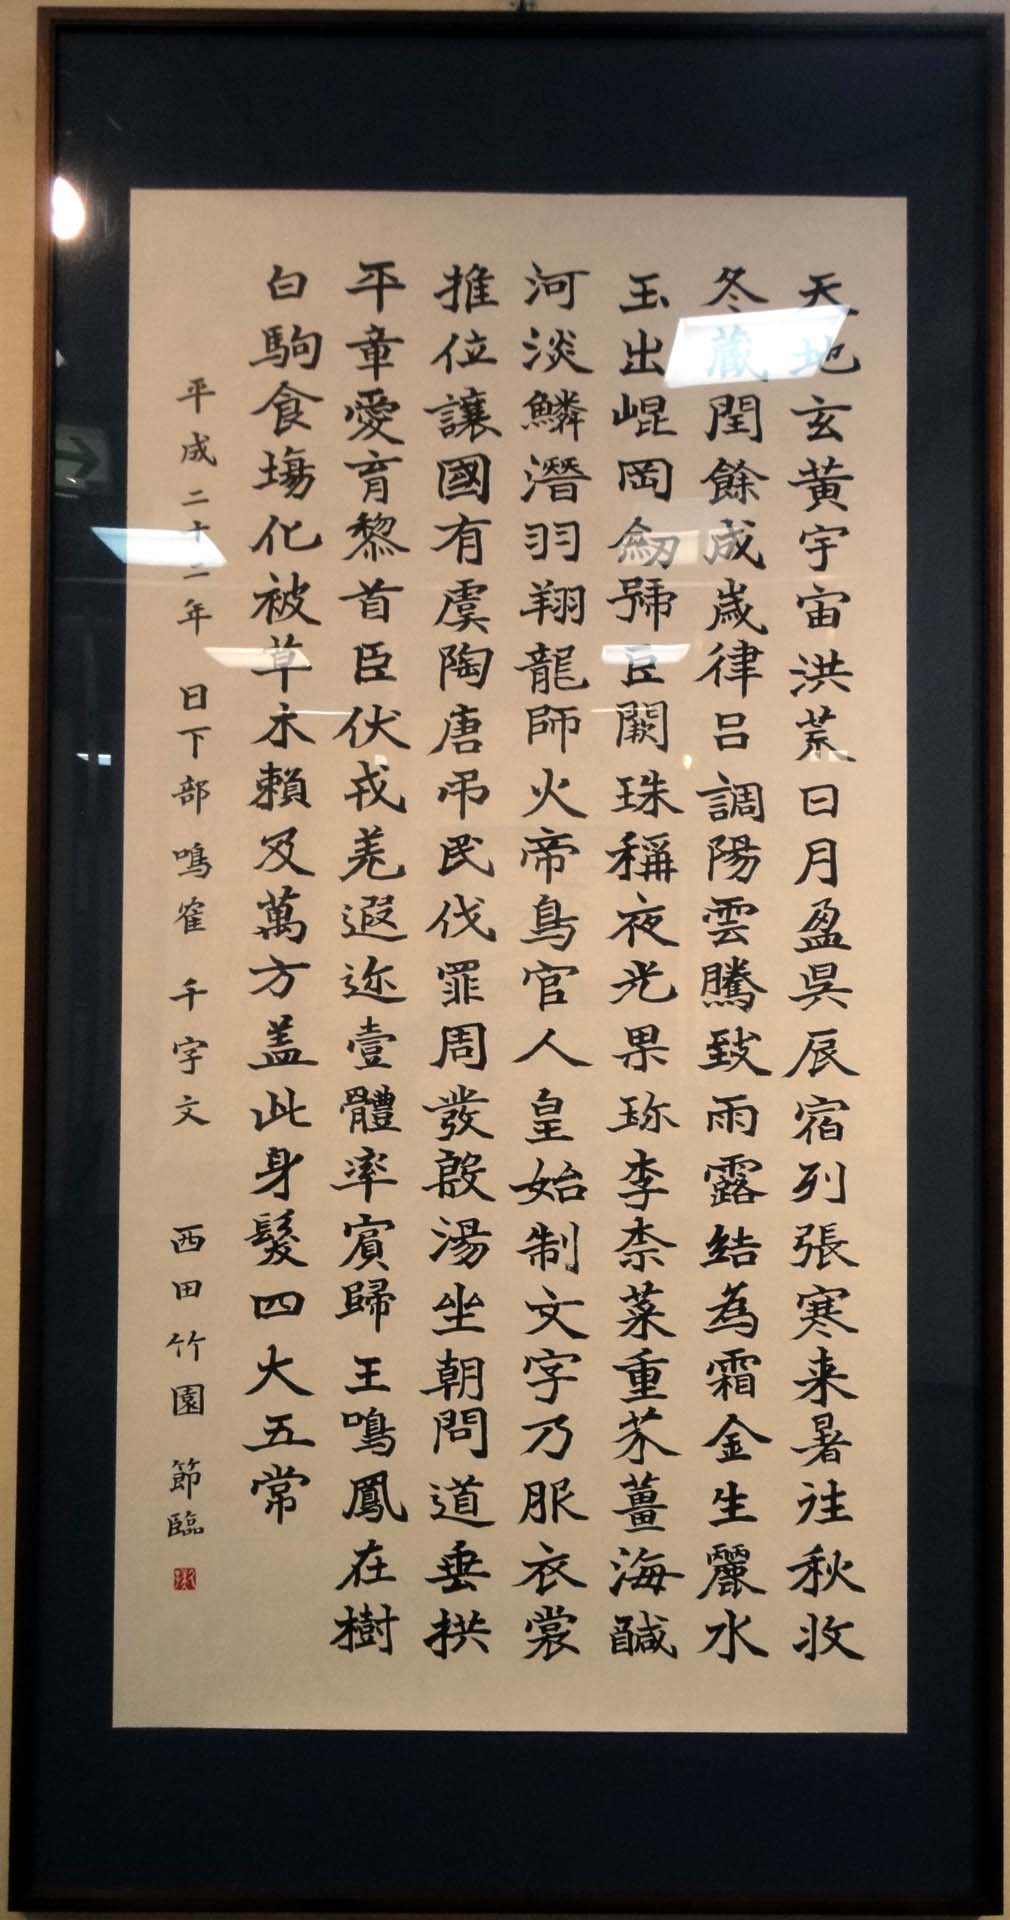 天地玄黄宇宙洪荒日月盈昃辰宿列張寒来暑往秋収
冬蔵閏餘成歳律呂調陽雲騰致雨露結為霜金生麗水
玉出崐岡劒號巨闕珠稱夜光果珎李柰菜重芥薑海鹹
河淡鱗潛羽翔龍師火帝鳥官人皇始制文字乃服衣裳
推位讓國有虞陶唐弔民伐罪周發殷湯坐朝問道垂拱
平章愛育黎首臣伏戎羌遐迩壹體率賓歸王鳴鳳在樹
白駒食場化被草木賴及萬方盖此身髮四大五常
平成二十二年 日下部鳴鶴 千字文 西田竹園 節臨